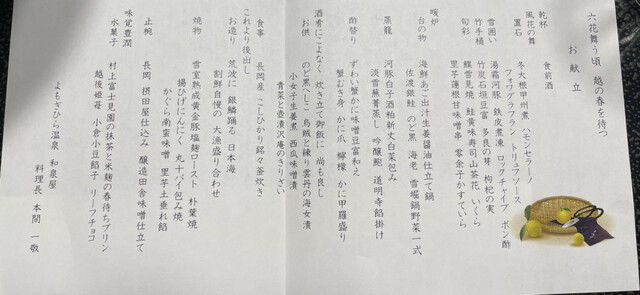 六花舞う頃 越の春を待つ
お献立
乾杯 食前酒
風花の舞
置石 冬大根甲州煮 ハモンセラーノ
フォワグラフラン トリュフソース
雪囲い 湯霜河豚 鉄皮煮凍 ロックチャイブ ポン酢
竹手桶 竹炭石垣豆富 多良の芽 枸杞の実
旬彩 鱈雪見焼 鮭黄味寿司 山茶花 いくら
里芋蓮根甘味噌串 零余子かすていら
暖炉
台の物 海鮮あご出汁生姜醤油仕立て鍋
佐渡銀鮭 のど黒 海老 雪堀鍋野菜一式
蒸籠 河豚白子酒粕新丈白菜包み
淡雪蕪菁蒸し 吟醸鮑 道明寺餡掛け
酢替り ずわい蟹かに味噌豆富和え
蟹おこわ身 かに爪 檸檬 かに甲羅盛り
酒肴にこよなく 炊き立て御飯に 尚も良し
お供 のど黒へしこ 烏賊と練り雲丹の海女漬
小女子生姜煮 西瓜味噌漬
青菜と壺漬沢庵のきりざい
食事 長岡産 こしひかり銘々釜炊き
これより後出し
お造り 荒波に 銀鱗踊る 日本海
割鮮慣の 大漁盛り合わせ
焼物 雪室熟成黄金豚塩麹ロースト 朴葉焼
揚げにんにく 丸十パイ包み焼
かぐら南蛮味噌 里芋土垂れ餡
止椀 長岡 摂田屋仕込み 醸造田舎味噌仕立て
味覚豊潤
水菓子 村上冨士見園の抹茶と米麹の春待ちプリン
越後姫苺 小倉小豆餡子 リーフチョコ
よもぎひら温泉 和泉屋
料理長 本間 一敬